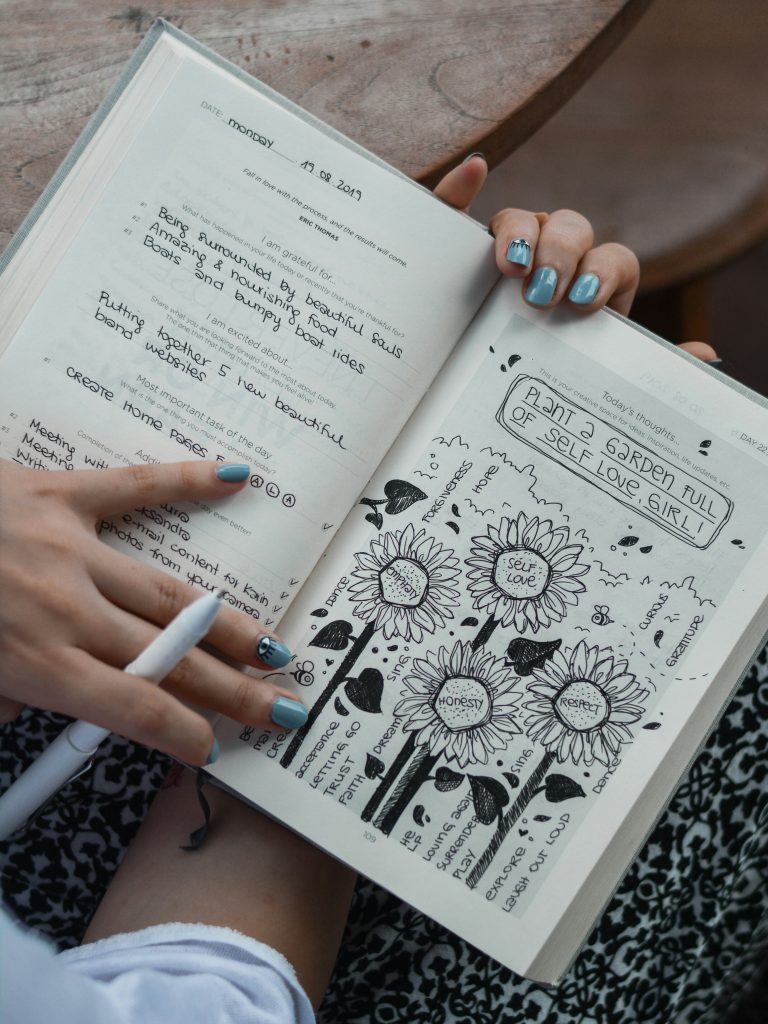 DATE: monday 19.08.2019
Fall in love with the process, and the results will come.
ERIC THOMAS
I am grateful for...
What has happened in your life today or recently that you're thankful for?
#1 Being surrounded by beautiful souls
#2 Amazing & nourishing food
#3 Boats and bumpy boat rides
I am excited about...
Share what you are looking forward to the most about today.
The one thin that thing that makes you feel alive!
Putting together 5 new beautiful
brand websites
Most important task of the day
What is the one thing you must accomplish today?
#1 CREATE HOME PAGES
A L A
Completion of
day even better!
#2 Meeting with
#3 Meeting
ksandra
e-mail content for Karin
photos from your camera
109
DAY 22
Today's thoughts...
This is your creative space for ideas, inspiration, life updates, etc.
PLANT A GARDEN FULL
OF SELF LOVE, GIRL!
FORGIVENESS
HOPE
SELF
LOVE
DANCE
CURIOUS
GRATITUDE
SING
HONESTY
RESPECT
acceptance
LETTING GO
TRUST
FAITH
Dream
SING
Dance
HELP
LOVING
SURRENDER
PLAY
EXPLORE
LAUGH OUT LOUD